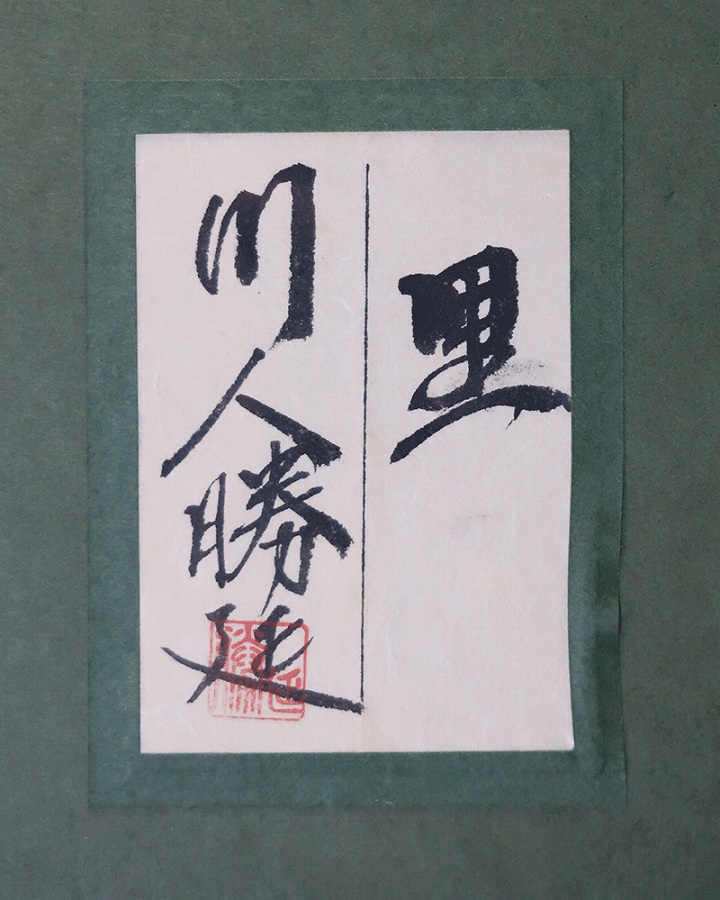 里
川人勝延